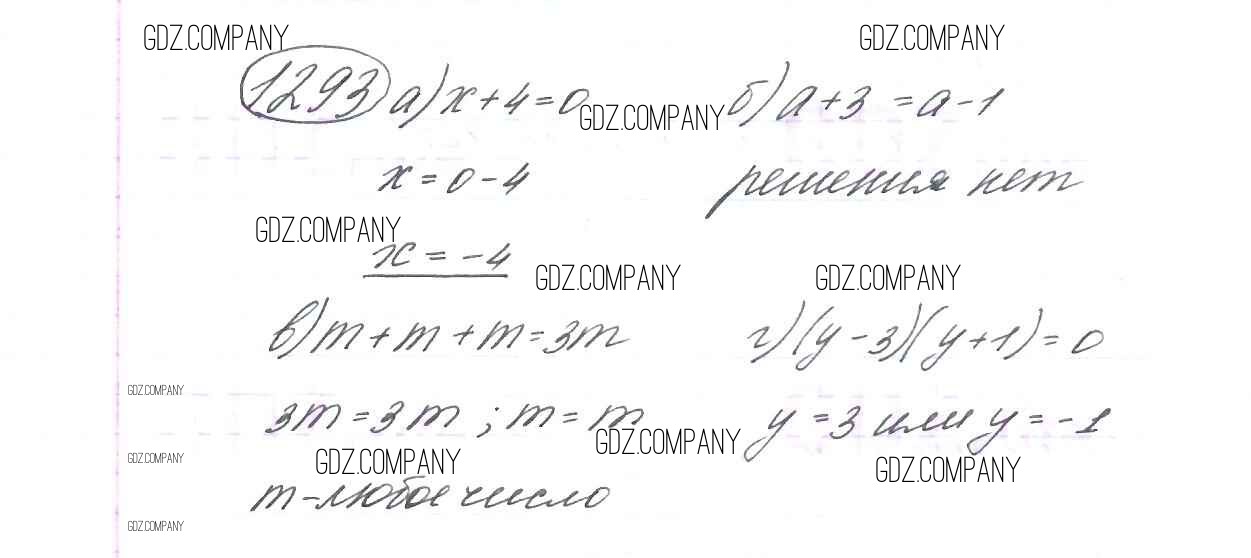 GDZ.COMPANY GDZ.COMPANY
1293 а) x + 4 = 0 GDZ.COMPANY б) a + 3 = a - 1
x = 0 - 4 решения нет
GDZ.COMPANY
x = -4
GDZ.COMPANY GDZ.COMPANY
в) m + m + m = 3m г) (y - 3)(y + 1) = 0
GDZ.COMPANY
3m = 3m ; m = m y = 3 или y = -1
GDZ.COMPANY
GDZ.COMPANY GDZ.COMPANY GDZ.COMPANY
m - любое число
GDZ.COMPANY